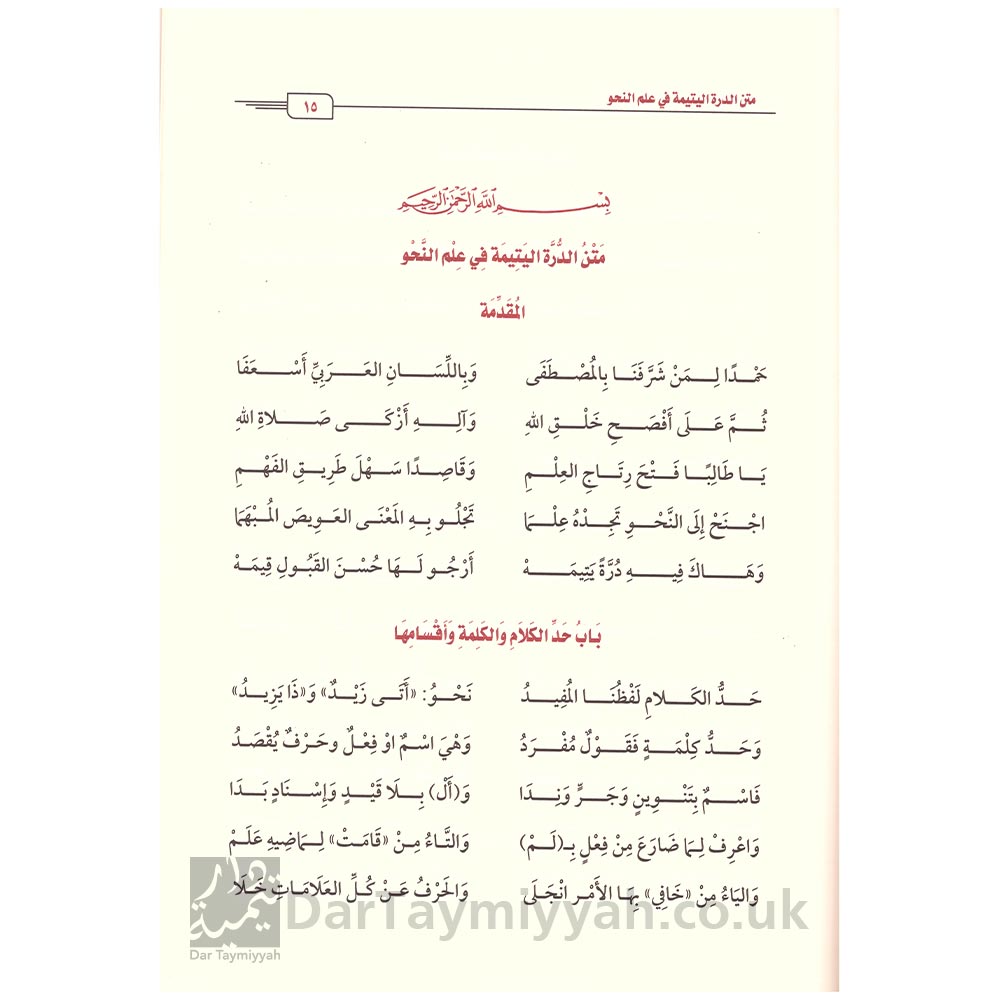 متن الدرة اليتيمة في علم النحو ١٥
بِسْمِ اللَّهِ الرَّحْمَٰنِ الرَّحِيمِ
مَتْنُ الدُّرَّة اليَتِيمَة فِي عِلْم النَّحْو
المُقَدِّمَة
حَمْدًا لِمَنْ شَرَّفَنَا بِالْمُصْطَفَى وَبِاللِّسَانِ العَرَبِيِّ أَسْعَفَا
ثُمَّ عَلَى أَفْصَحِ خَلْقِ اللهِ وَآلِهِ أَزْكَى صَلاةِ اللهِ
يَا طَالِبًا فَتْحَ رِتَاجِ العِلْمِ وَقَاصِدًا سَهْلَ طَرِيقِ الفَهْمِ
اجْنَحْ إِلَى النَّحْوِ تَجِدْهُ عِلْمَا تَجْلُو بِهِ المَعْنَى العَوِيصَ المُبْهَمَا
وَهَاكَ فِيهِ دُرَّةً يَتِيمَهْ أَرْجُو لَهَا حُسْنَ القَبُولِ قِيمَهْ
بَابُ حَدِّ الكَلَامِ وَالكَلِمَةِ وَأَقْسَامِهَا
حَدُّ الكَلامِ لَفْظُنَا المُفِيدُ نَحْوُ: «أَتَى زَيْدٌ» وَ«ذَا يَزِيدُ»
وَحَدُّ كِلْمَةٍ فَقَوْلٌ مُفْرَدُ وَهْيَ اسْمٌ اوْ فِعْلٌ وحَرْفٌ يُقْصَدُ
فَاسْمٌ بِتَنْوِينٍ وَجَرٍّ وَنِدَا وَ(أَلْ) بِلَا قَيْدٍ وَإِسْنَادٍ بَدَا
وَاعْرِفْ لِمَا ضَارَعَ مِنْ فِعْلٍ بِـ(لَمْ) وَالتَّاءُ مِنْ «قَامَتْ» لِمَاضِيهِ عَلَمْ
وَالْيَاءُ مِنْ «خَافِي» بِهَا الأَمْر انْجَلَى وَالحَرْفُ عَنْ كُلِّ العَلَامَاتِ خَلَا
DarTaymiyyah.co.uk
دار تيمية
Dar Taymiyyah